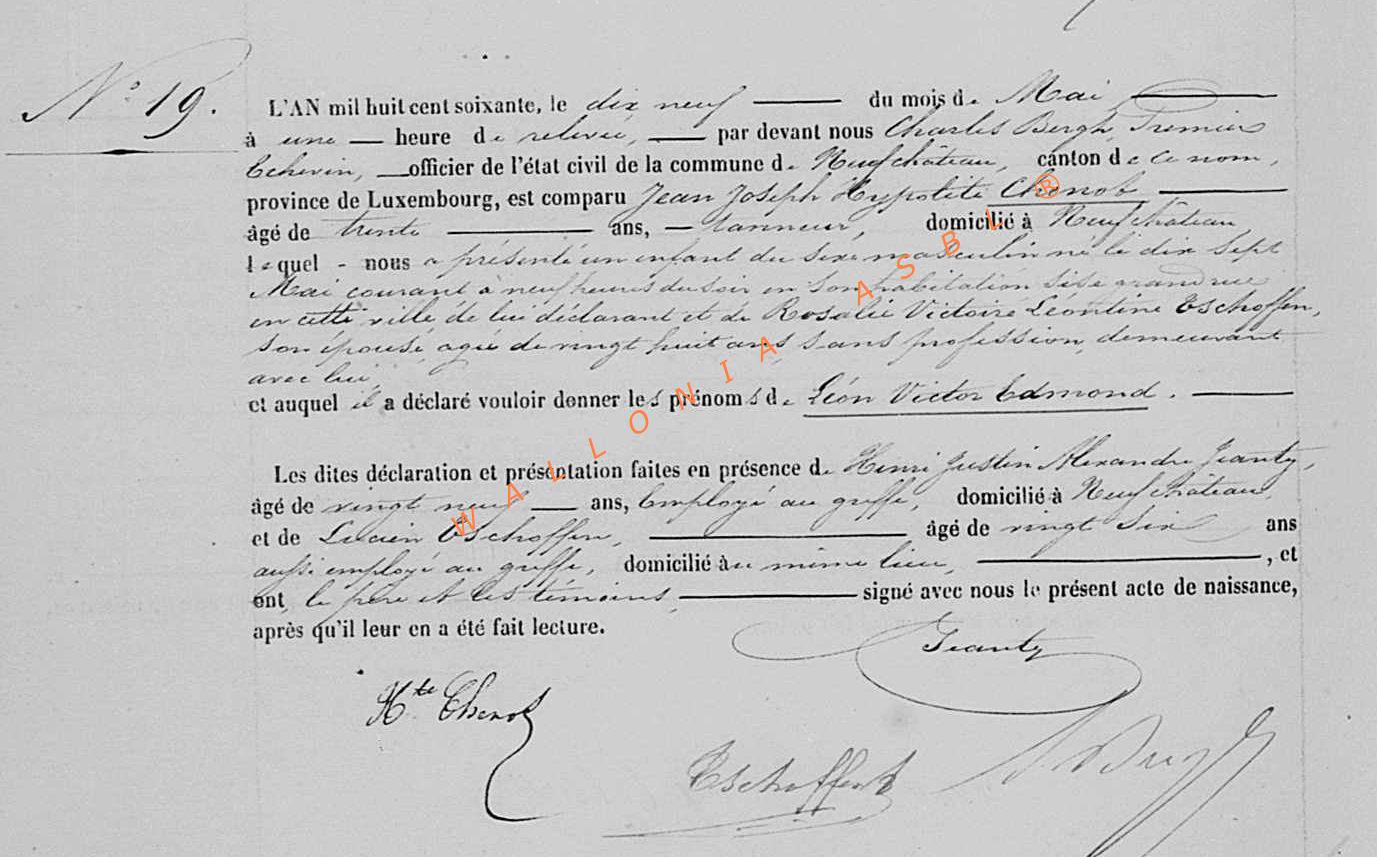 N° 19.
L'AN mil huit cent soixante, le dix neuf du mois de Mai
à une heure de relevée, par devant nous Charles Bergh, Premier
Echevin, officier de l'état civil de la commune de Neufchâteau, canton de ce nom,
province de Luxembourg, est comparu Jean Joseph Hypolite Chenot
âgé de trente ans, tanneur, domicilié à Neufchâteau
lequel nous a présenté un enfant du sexe masculin né le dix sept
Mai courant à neuf heures du soir en son habitation sise grand rue
en cette ville, de lui déclarant et de Rosalie Victoire Léontine Eschoffen,
son épouse, agée de vingt huit ans, sans profession, demeurant
avec lui,
et auquel il a déclaré vouloir donner les prénoms de Léon Victor Edmond.
Les dites déclaration et présentation faites en présence de Henri Justin Alexandre Jeanty,
âgé de vingt neuf ans, Employé au greffe, domicilié à Neufchâteau
et de Lucien Eschoffen, âgé de vingt six ans
aussi employé au greffe, domicilié au même lieu, , et
ont, le père et les témoins, signé avec nous le présent acte de naissance,
après qu'il leur en a été fait lecture.
Jeanty
Hte Chenot
Eschoffen
WALLONIA ASBL ®